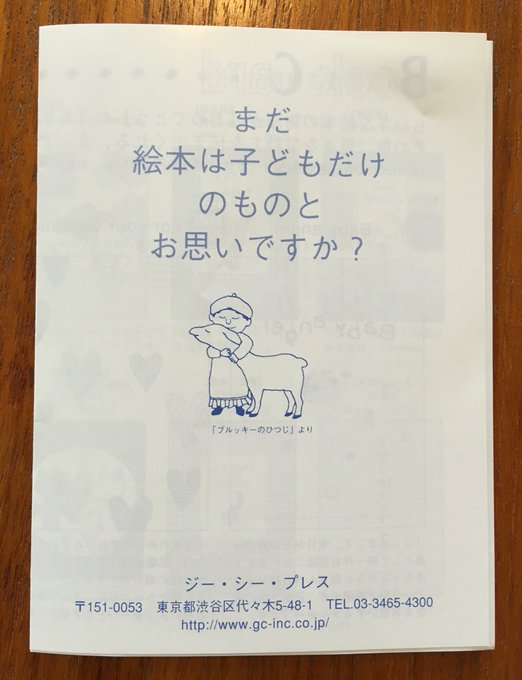 まだ
絵本は子どもだけ
のものと
お思いですか？
「ブルッキーのひつじ」より
ジー・シー・プレス
〒151-0053 東京都渋谷区代々木5-48-1 TEL.03-3465-4300
http://www.gc-inc.co.jp/